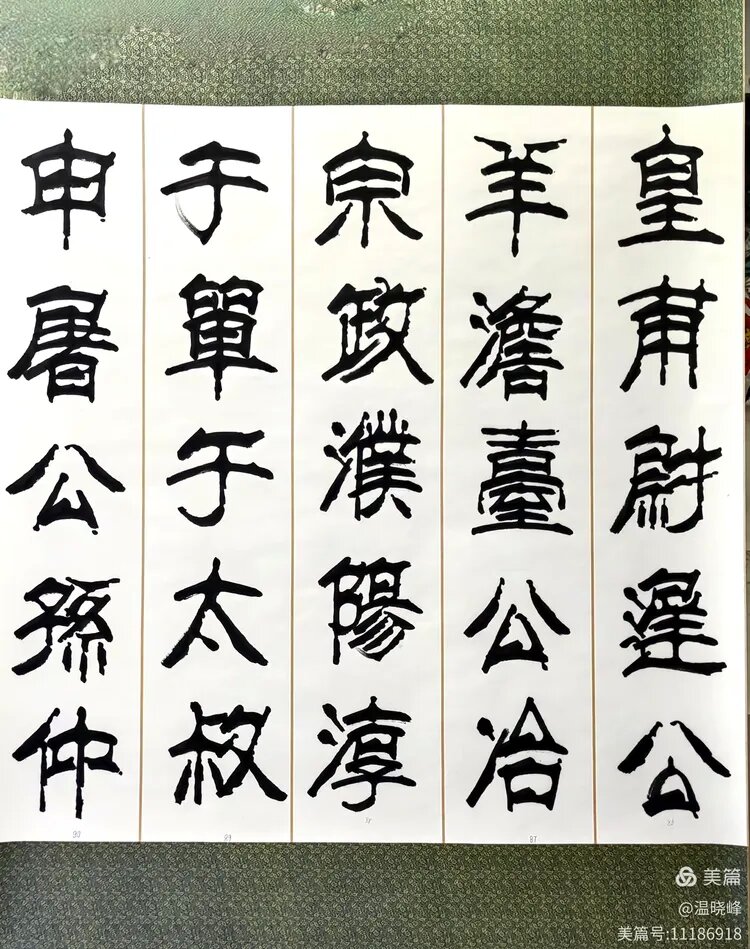 皇甫尉遲公
羊澹臺公冶
宗政濮陽淳
于單于太叔
申屠公孫仲
美篇
@温晓峰
美篇号:11186918